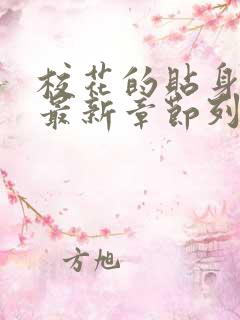 校花的貼身
最新章節列
方旭